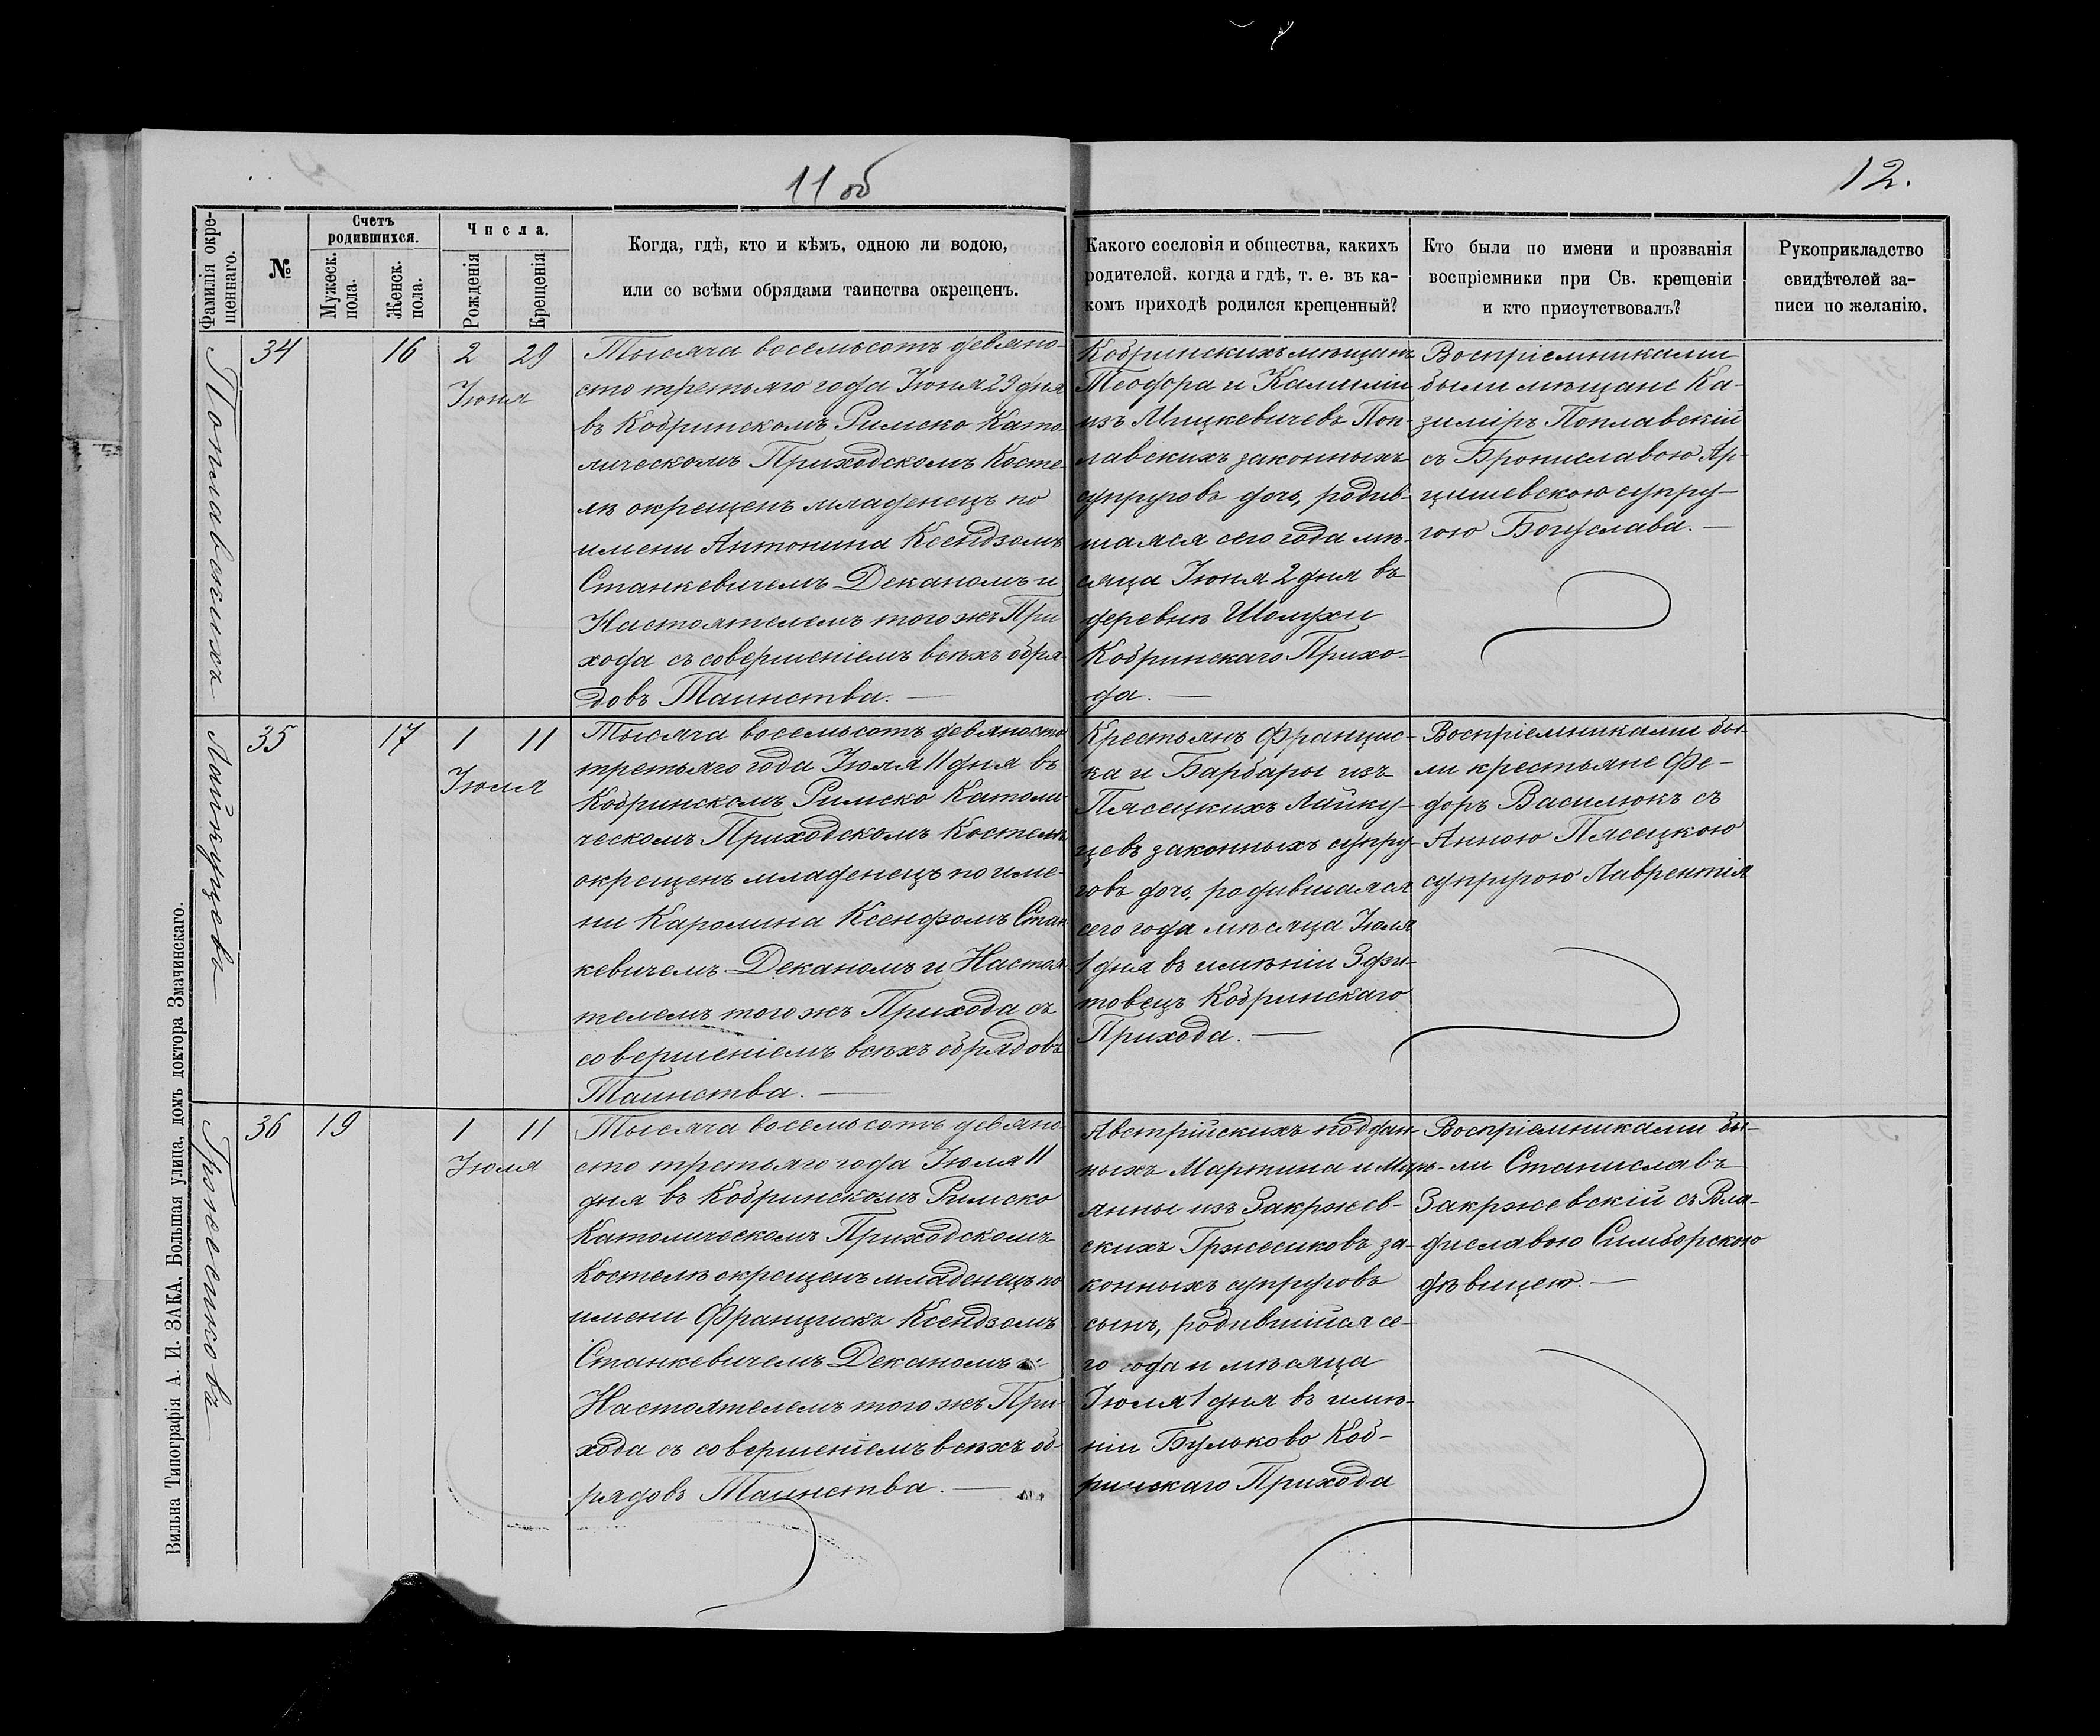 11 об
12.
Фамилія окре-
щеннаго.
№
Счетъ
родившихся.
Мужеск.
пола.
Женск.
пола.
Числа.
Рожденія
Крещенія
Когда, гдѣ, кто и кѣмъ, одною ли водою,
или со всѣми обрядами таинства окрещенъ.
Какого сословія и общества, какихъ
родителей. когда и гдѣ, т. е. въ ка-
комъ приходѣ родился крещенный?
Кто были по имени и прозванія
воспріемники при Св. крещеніи
и кто присутствовалъ?
Рукоприкладство
свидѣтелей за-
писи по желанію.
Поплавскихъ
34
16
2 29
Іюня
Тысяча восемьсотъ девяно-
сто третьяго года Іюня 29 дня
въ Кобринскомъ Римско Като-
лическомъ Приходскомъ Косте-
лѣ окрещенъ младенецъ по
имени Антонина Ксендзомъ
Станкевичемъ Деканомъ и
Настоятелемъ того жъ При-
хода съ совершеніемъ всѣхъ обря-
довъ Таинства.
Кобринскихъ мѣщанъ
Теофора и Камиліи
изъ Мицкевичевъ Поп-
лавскихъ законныхъ
супруговъ дочь, родив-
шаяся сего года мѣ-
сяца Іюня 2 дня въ
деревнѣ Шолухи
Кобринскаго Прихо-
да.
Воспріемниками
были мѣщане Ка-
зиміръ Поплавскій
съ Брониславою Яр-
цишевскою супру-
гою Богуслава.
Лайкуцевъ
35
17
1 11
Іюля
Тысяча восемьсотъ девяносто
третьяго года Іюля 11 дня въ
Кобринскомъ Римско Католи-
ческомъ Приходскомъ Костелѣ
окрещенъ младенецъ по име-
ни Каролина Ксендзомъ Стан-
кевичемъ Деканомъ и Настоя-
телемъ того жъ Прихода съ
совершеніемъ всѣхъ обрядовъ
Таинства.
Крестьянъ Францис-
ка и Барбары изъ
Пясецкихъ Лайку-
цевъ законныхъ супру-
говъ дочь, родившаяся
сего года мѣсяца Іюля
1 дня въ имѣніи Здзи-
товецъ Кобринскаго
Прихода.
Воспріемниками бы-
ли крестьяне Фе-
доръ Василюкъ съ
Анною Пясецкою
супругою Лаврентія
Гржесиковъ
36
19
1 11
Іюля
Тысяча восемьсотъ девяно-
сто третьяго года Іюля 11
дня въ Кобринскомъ Римско
Католическомъ Приходскомъ
Костелѣ окрещенъ младенецъ по
имени Францискъ Ксендзомъ
Станкевичемъ Деканомъ и
Настоятелемъ того жъ При-
хода съ совершеніемъ всѣхъ об-
рядовъ Таинства.
Австрійскихъ поддан-
ныхъ Мартина и Мар-
янны изъ Закржев-
скихъ Гржесиковъ за-
конныхъ супруговъ
сынъ, родившійся се-
го года и мѣсяца
Іюля 1 дня въ имѣ-
ніи Бульково Коб-
ринскаго Прихода
Воспріемниками бы-
ли Станиславъ
Закржевскій съ Вла-
диславою Симборскою
дѣвицею.
Вильна Типографія А. И. ЗАКА, Большая улица, домъ доктора Змачинскаго.